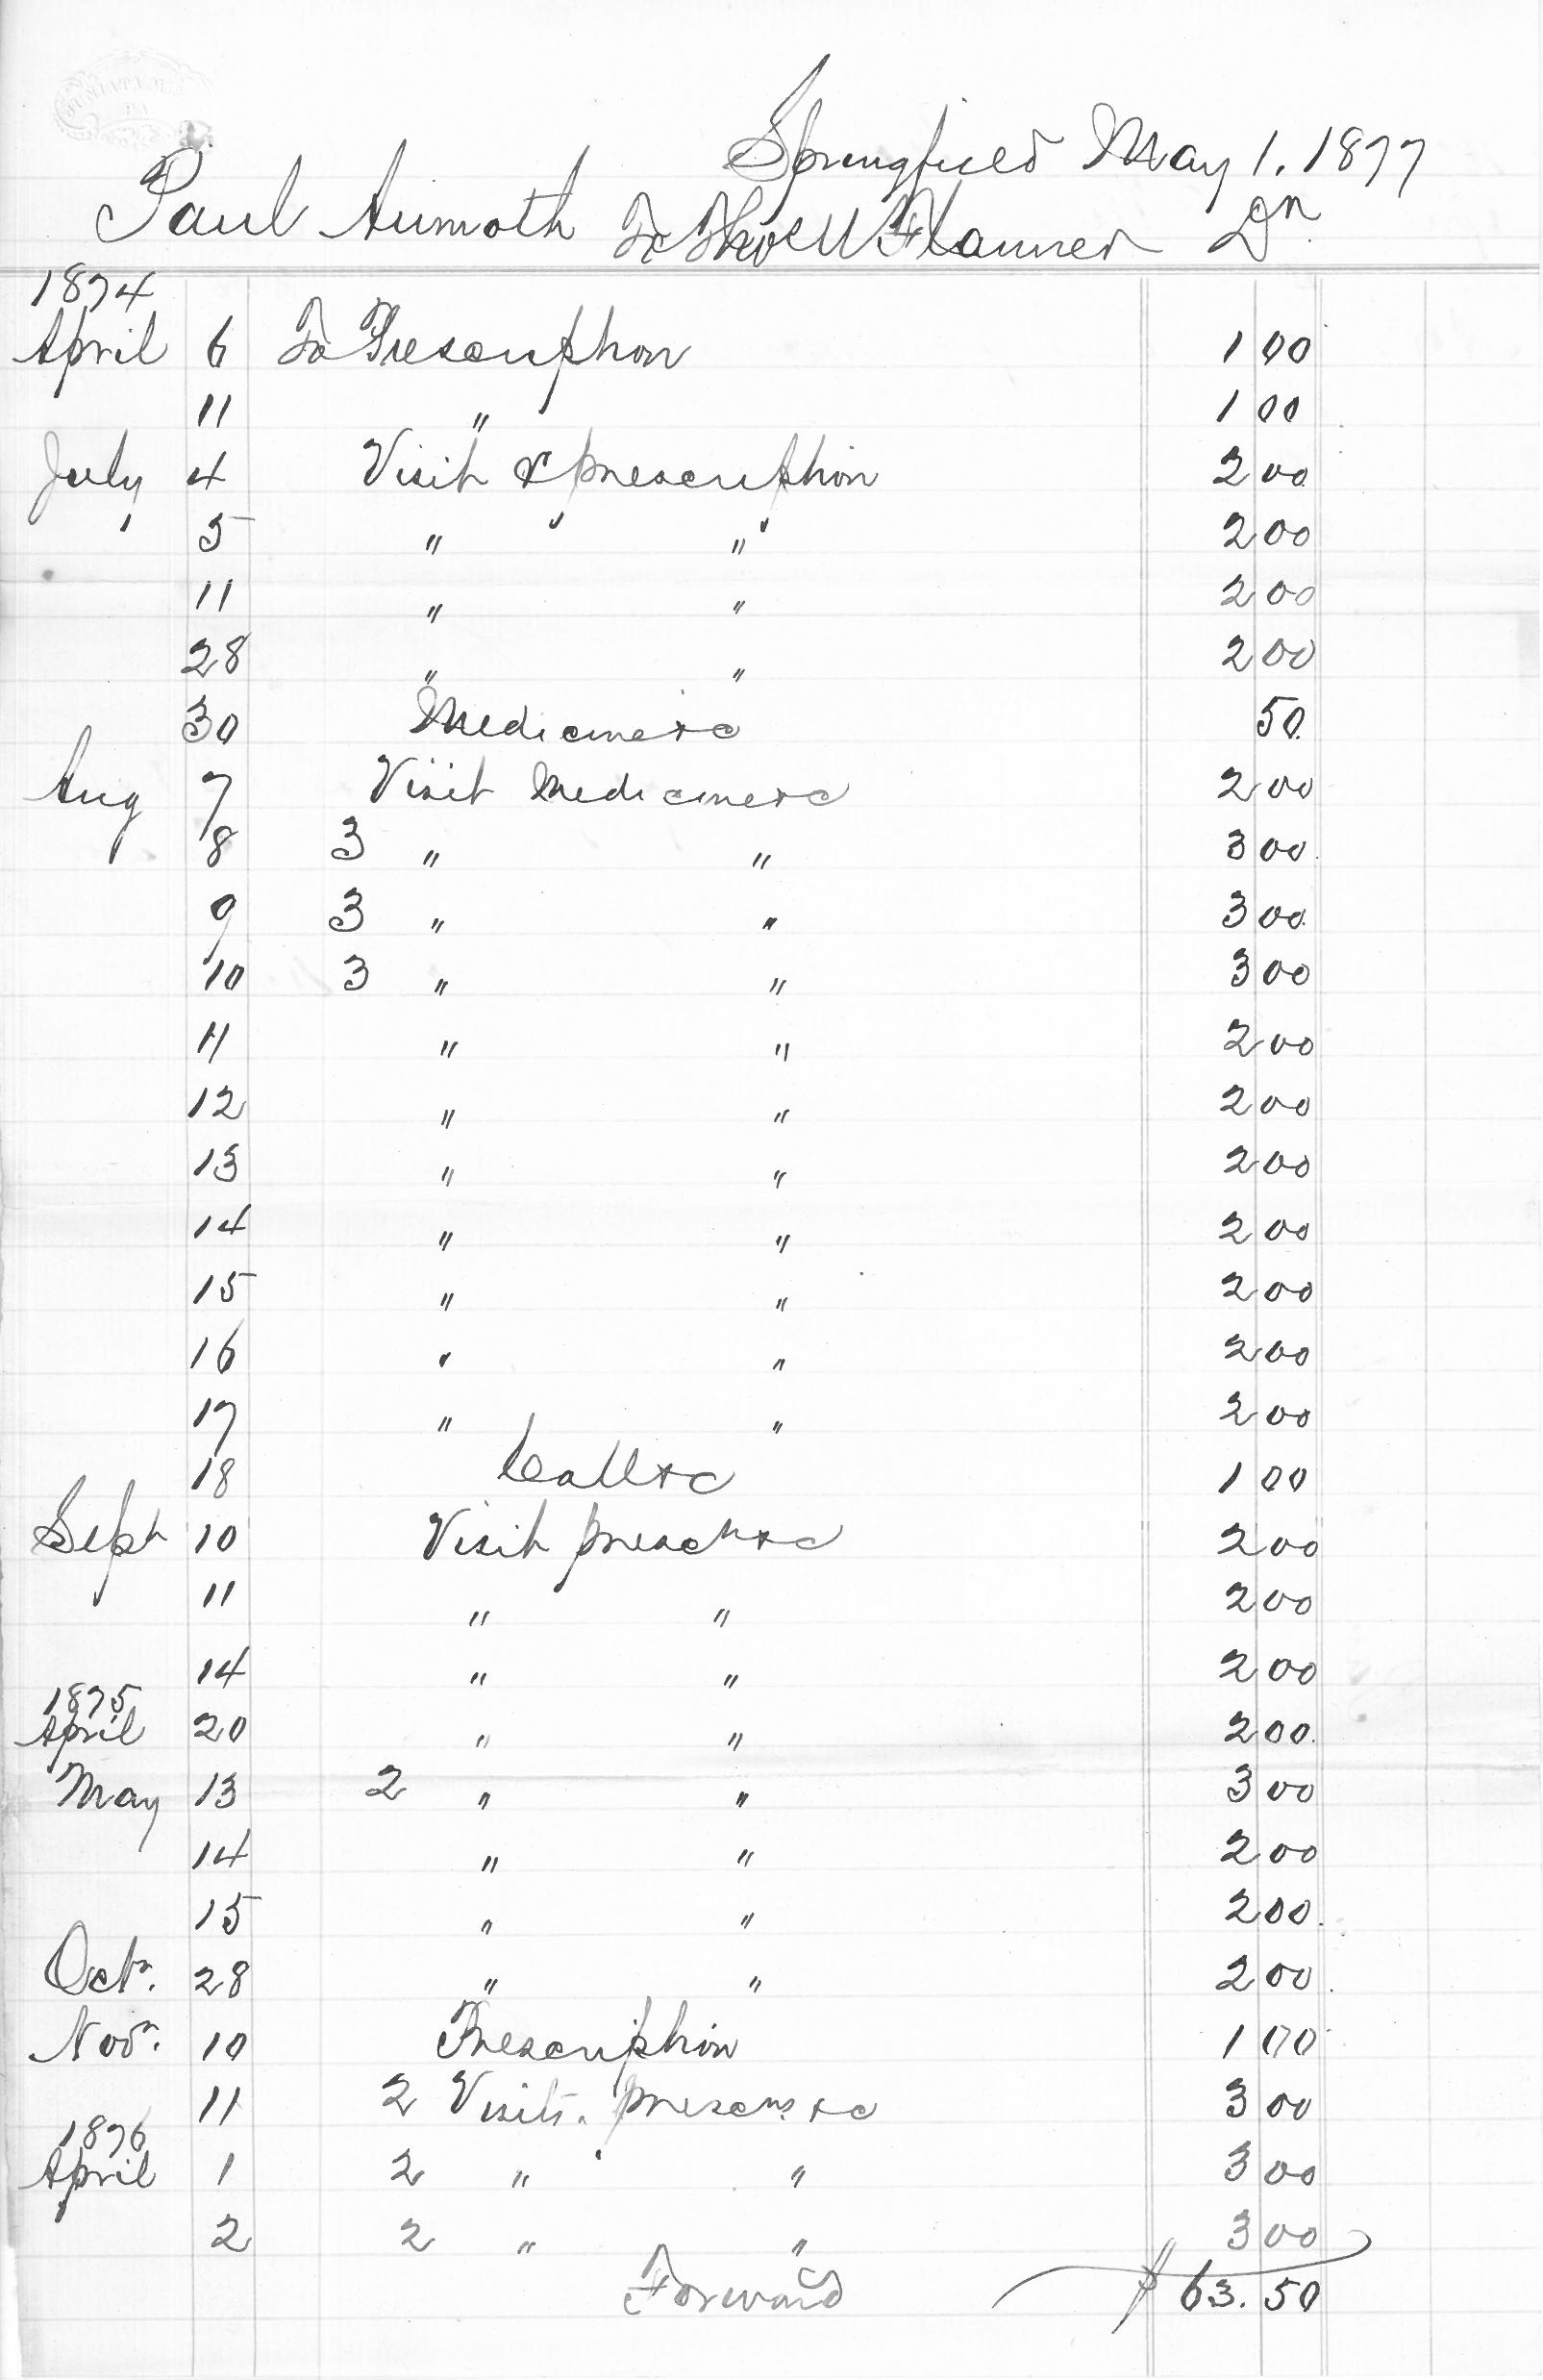 Springfield May 1. 1877
Paul Aumoth To Thos W Flanner Dr.
1874
April 6 To Prescription 1 00
11 " 1 00
July 4 Visit & prescription 2 00
5 " " 2 00
11 " " 2 00
28 " " 2 00
30 Medicine &c 50
Aug 7 Visit Medicine &c 2 00
8 3 " " 3 00
9 3 " " 3 00
10 3 " " 3 00
11 " " 2 00
12 " " 2 00
13 " " 2 00
14 " " 2 00
15 " " 2 00
16 " " 2 00
17 " " 2 00
18 Call &c 1 00
Sept 10 Visit prescn &c 2 00
11 " " 2 00
14 " " 2 00
1875
April 20 " " 2 00
May 13 2 " " 3 00
14 " " 2 00
15 " " 2 00
Octr. 28 " " 2 00
Novr. 10 Prescription 1 00
11 2 Visits. prescns. &c 3 00
1876
April 1 2 " " 3 00
2 2 " " 3 00
Forward $ 63.50